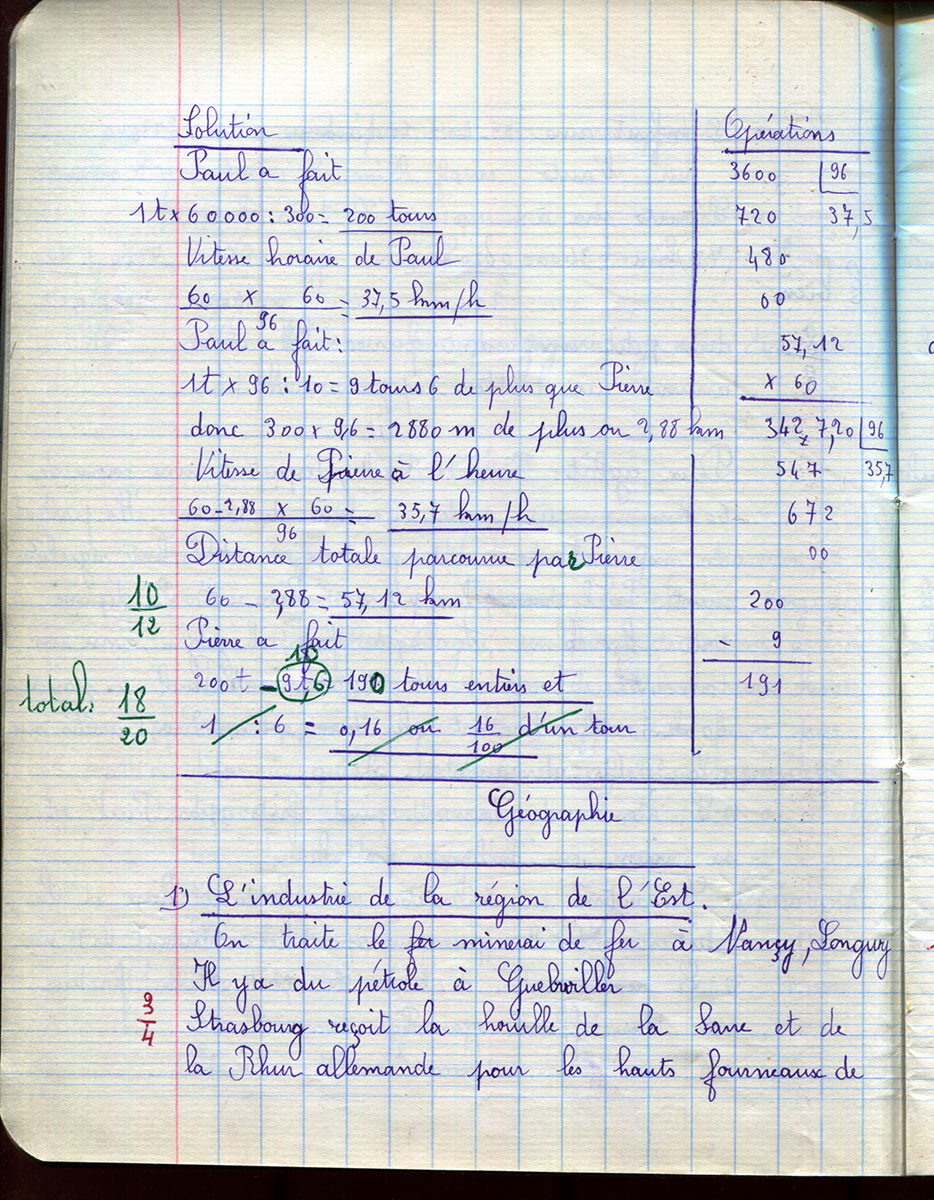 Solution
Paul a fait
1t x 60000 : 300 = 200 tours
Vitesse horaire de Paul
60 x 60 = 37,5 km/h
96
Paul a fait :
1t x 96 : 10 = 9 tours 6 de plus que Pierre
donc 300 x 9,6 = 2880 m de plus ou 2,88 km
Vitesse de Pierre à l'heure
60 - 2,88 x 60 = 35,7 km/h
96
Distance totale parcourue par Pierre
60 - 2,88 = 57,12 km
Pierre a fait
10
200t - 9t,6 = 190 tours entiers et
1 : 6 = 0,16 ou 16/100 d'un tour
10/12
total : 18/20
Opérations
3600 96
720 37,5
480
00
57,12
x 60
342 7,20 96
547 35,7
672
00
200
- 9
191
Géographie
1) L'industrie de la région de l'Est.
On traite le fer minerai de fer à Nançy, Longwy
Il y a du pétrole à Guebwiller
3/4
Strasbourg reçoit la houille de la Sarre et de
la Rhur allemande pour les hauts fourneaux de